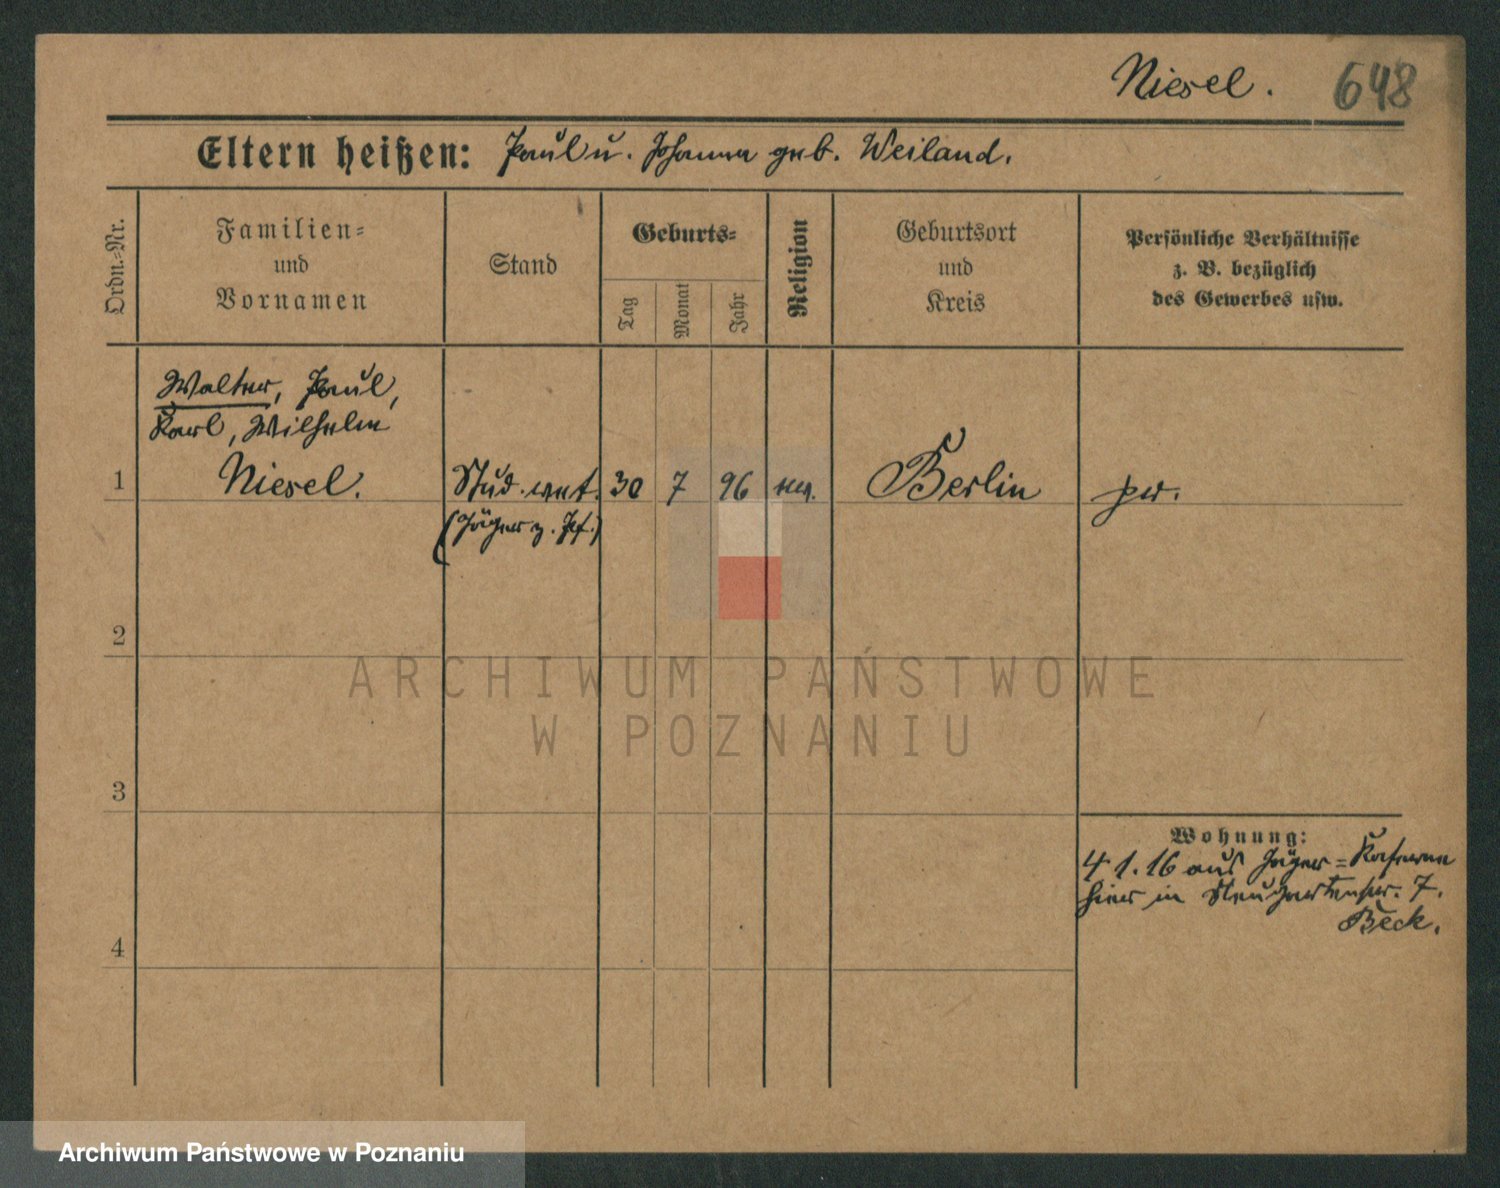 Niesel. 648
Eltern heißen: Paul u. Johanna geb. Weiland.
Ordn.-Nr.
Familien-
und
Vornamen
Stand
Geburts-
Tag
Monat
Jahr
Religion
Geburtsort
und
Kreis
Persönliche Verhältnisse
z. B. bezüglich
des Gewerbes usw.
Walter, Paul,
Karl, Wilhelm
1 Niesel. Stud. 30 7 96 ev. Berlin pr.
(Jäger z. Pf.)
2
ARCHIWUM PAŃSTWOWE
W POZNANIU
3
Wohnung:
4 1. 16 aus Jäger-Kaserne
hier in Neugartenstr. 7.
Beck.
4
Archiwum Państwowe w Poznaniu